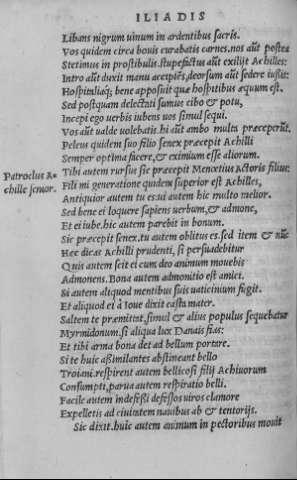 ILIADIS
Libans nigrum uinum in ardentibus sacris.
Vos quidem circa bouis curabatis carnes, nos aūt postea
Stetimus in prostibulis. stupefactus aūt exilijt Achilles:
Intro aūt duxit manu accepiēs, deorsum aūt sedere iussit:
Hospitaliaq; bene apposuit quæ hospitibus æquum est.
Sed postquam delectati sumus cibo & potu,
Incepi ego uerbis iubens uos simul sequi.
Vos aūt ualde uolebatis. hi aūt ambo multa præceperūt.
Peleus quidem suo filio senex præcepit Achilli
Semper optima facere, & eximium esse aliorum.
Patroclus A=
chille senior.
Tibi autem rursus sic præcepit Menœtius Actoris filius:
Fili mi generatione quidem superior est Achilles,
Antiquior autem tu es. ui autem hic multo melior.
Sed bene ei loquere sapiens uerbum, & admone,
Et ei iube. hic autem parebit in bonum.
Sic præcepit senex, tu autem oblitus es. sed item & nūc
Hec dicas Achilli prudenti, si persuadebitur
Quis autem scit ei cum deo animum mouebis
Admonens. Bona autem admonitio est amici.
Si autem aliquod mentibus suis uaticinium fugit.
Et aliquod ei à Ioue dixit casta mater.
Saltem te præmittat, simul & alius populus sequebatur
Myrmidonum. si aliqua lux Danais fias:
Et tibi arma bona det ad bellum portare.
Si te huic assimilantes abstineant bello
Troiani. respirent autem bellicosi filij Achiuorum
Consumpti, parua autem respiratio belli.
Facile autem indefessi defessos uiros clamore
Expelletis ad ciuitatem nauibus ab & tentorijs.
Sic dixit. huic autem animum in pectoribus mouit